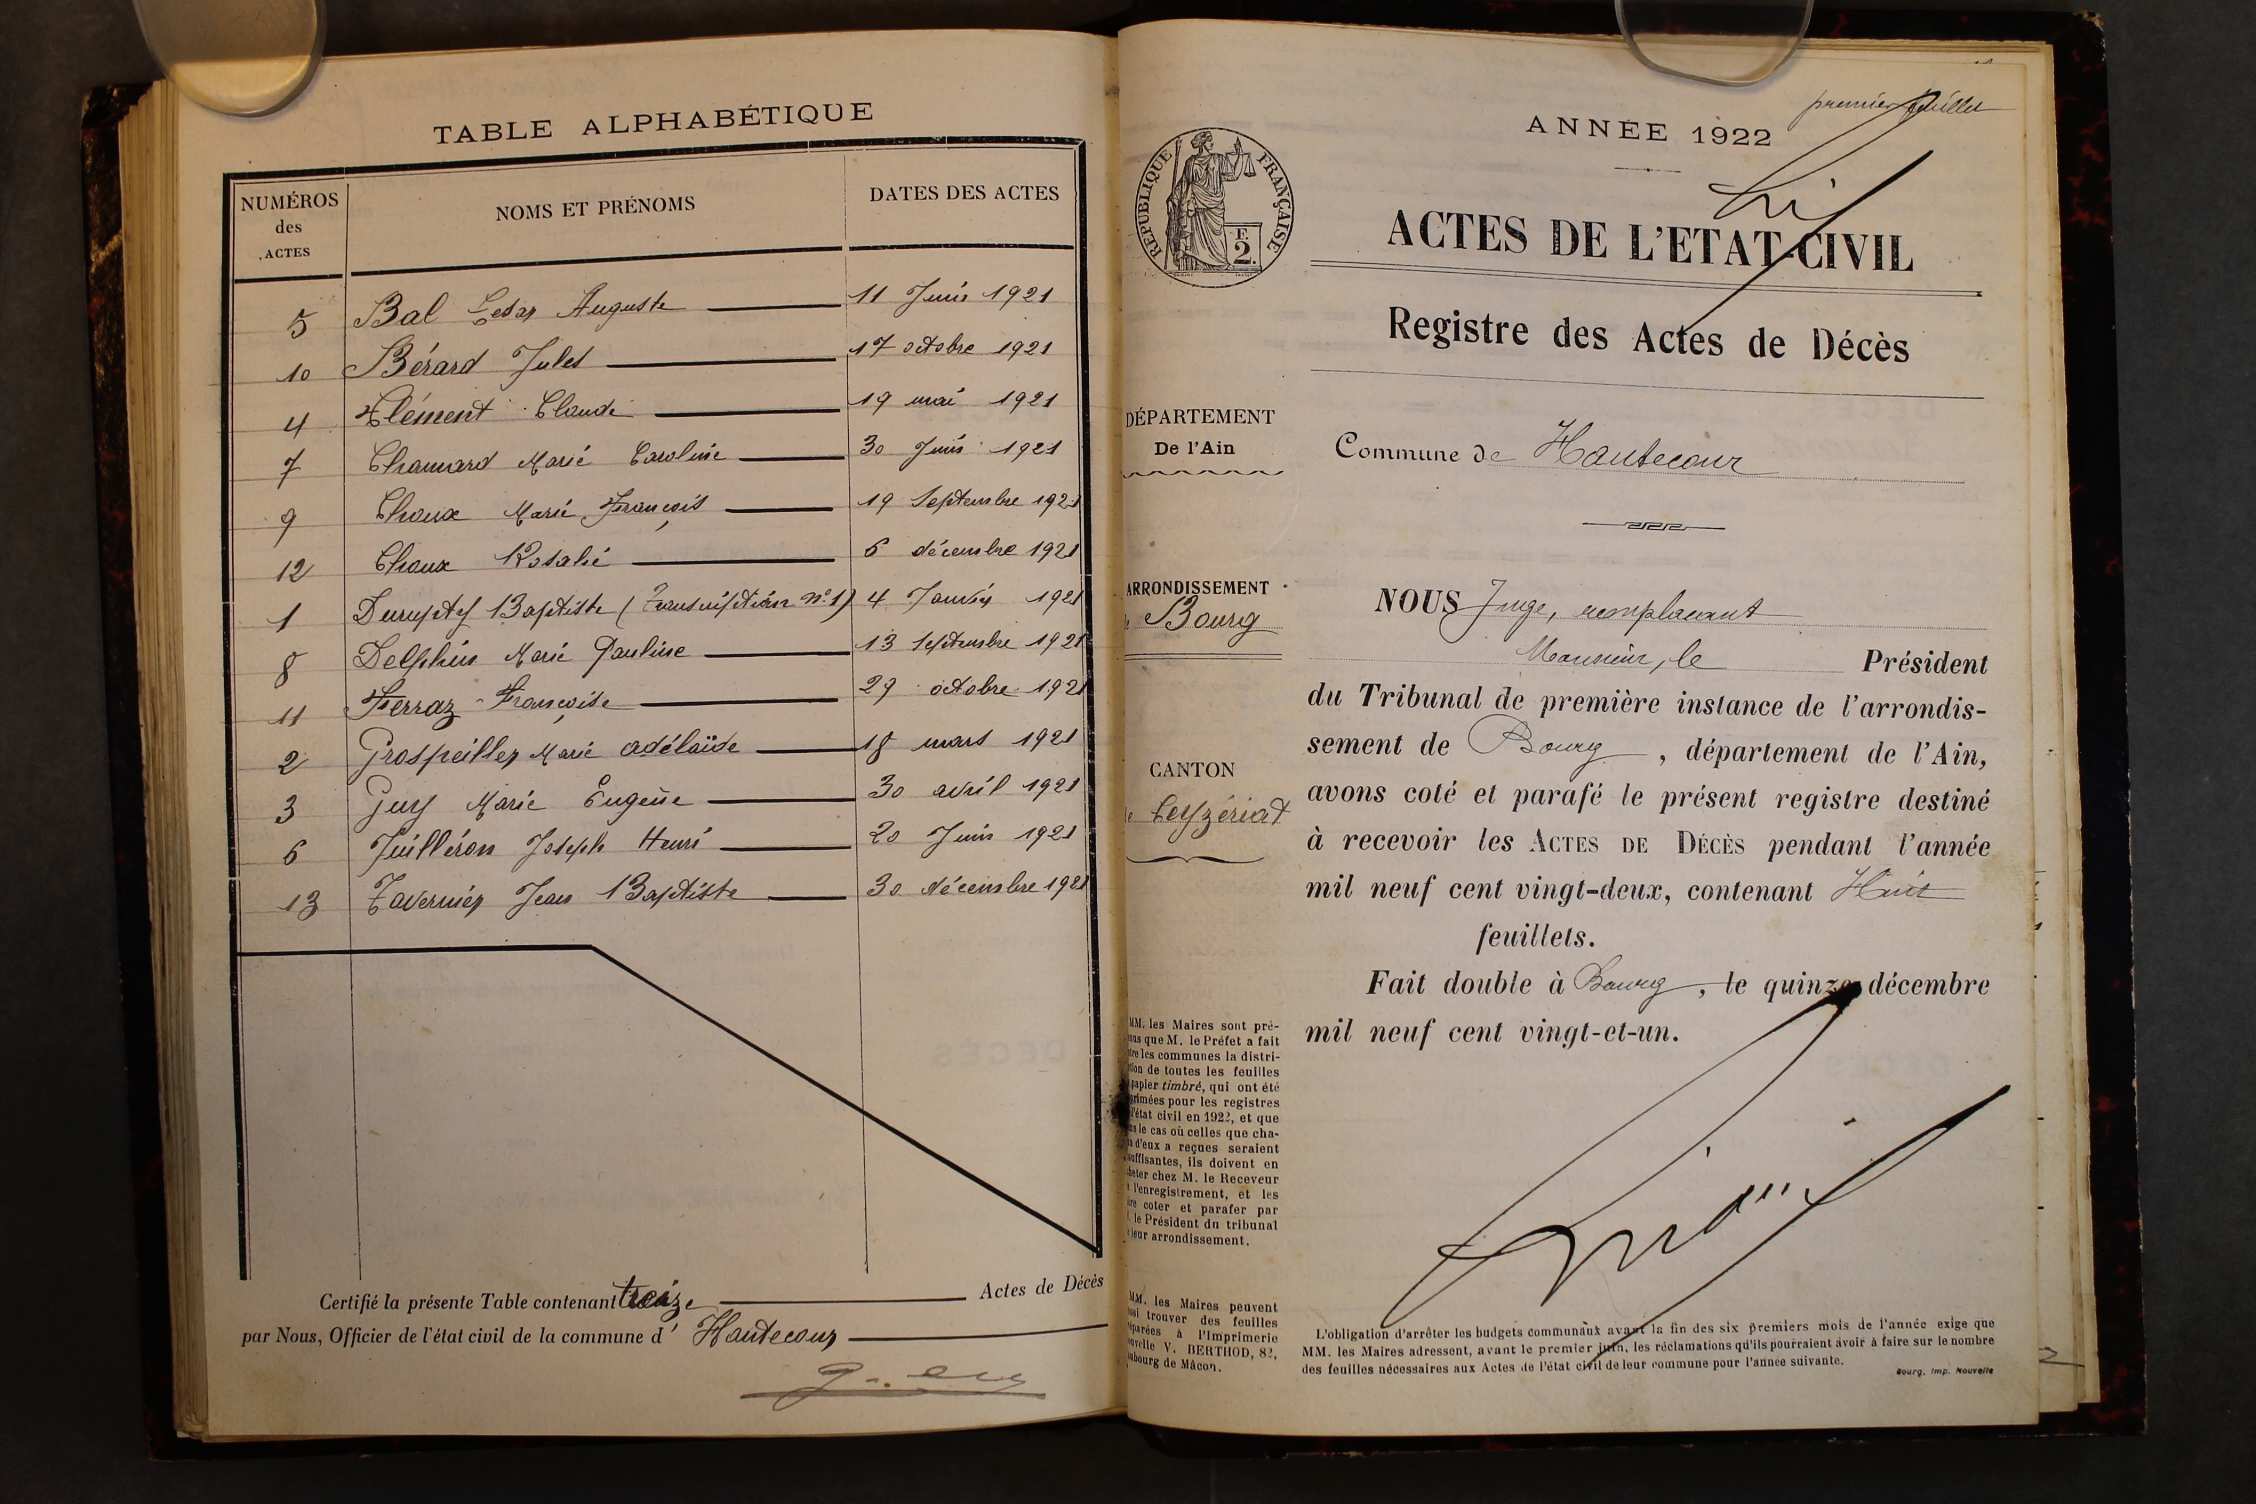 TABLE ALPHABÉTIQUE
NUMÉROS des ACTES NOMS ET PRÉNOMS DATES DES ACTES
5 Bal César Auguste 11 Juin 1921
10 Bérard Jules 17 octobre 1921
4 Clément Claude 19 mai 1921
7 Chanard Marie Caroline 30 Juin 1921
9 Choux Marie François 19 Septembre 1921
12 Choux Rosalie 6 décembre 1921
1 Durupty Baptiste (Transcription N°1) 4 Janvier 1921
8 Delphin Marie Pauline 13 Septembre 1921
11 Ferraz Françoise 29 octobre 1921
2 Grospeiller Marie adélaïde 18 mars 1921
3 Guy Marie Eugène 30 avril 1921
6 Juilléron Joseph Henri 20 Juin 1921
13 Tavernier Jean Baptiste 30 décembre 1921
Certifié la présente Table contenant treize Actes de Décès
par Nous, Officier de l'état civil de la commune d' Hautecour
premier feuillet
ANNÉE 1922
RÉPUBLIQUE FRANÇAISE
2 F.
ACTES DE L'ETAT-CIVIL
Registre des Actes de Décès
DÉPARTEMENT
De l'Ain
Commune de Hautecour
ARRONDISSEMENT
Bourg
CANTON
Ceyzériat
NOUS Juge, remplaçant
Monsieur, le Président
du Tribunal de première instance de l'arrondis-
sement de Bourg, département de l'Ain,
avons coté et parafé le présent registre destiné
à recevoir les ACTES DE DÉCÈS pendant l'année
mil neuf cent vingt-deux, contenant Huit
feuillets.
Fait double à Bourg, le quinze décembre
mil neuf cent vingt-et-un.
MM. les Maires sont pré-
que M. le Préfet a fait
les communes la distri-
de toutes les feuilles
papier timbré, qui ont été
pour les registres
l'état civil en 1922, et que
le cas où celles que cha-
d'eux a reçues seraient
ils doivent en
chez M. le Receveur
l'enregistrement, et les
coter et parafer par
le Président du tribunal
leur arrondissement.
MM. les Maires peuvent
trouver des feuilles
à l'Imprimerie
V. BERTHOD, 82,
de Mâcon.
L'obligation d'arrêter les budgets communaux avant la fin des six premiers mois de l'année exige que
MM. les Maires adressent, avant le premier juin, les réclamations qu'ils pourraient avoir à faire sur le nombre
des feuilles nécessaires aux Actes de l'état civil de leur commune pour l'année suivante.
Bourg, Imp. Nouvelle